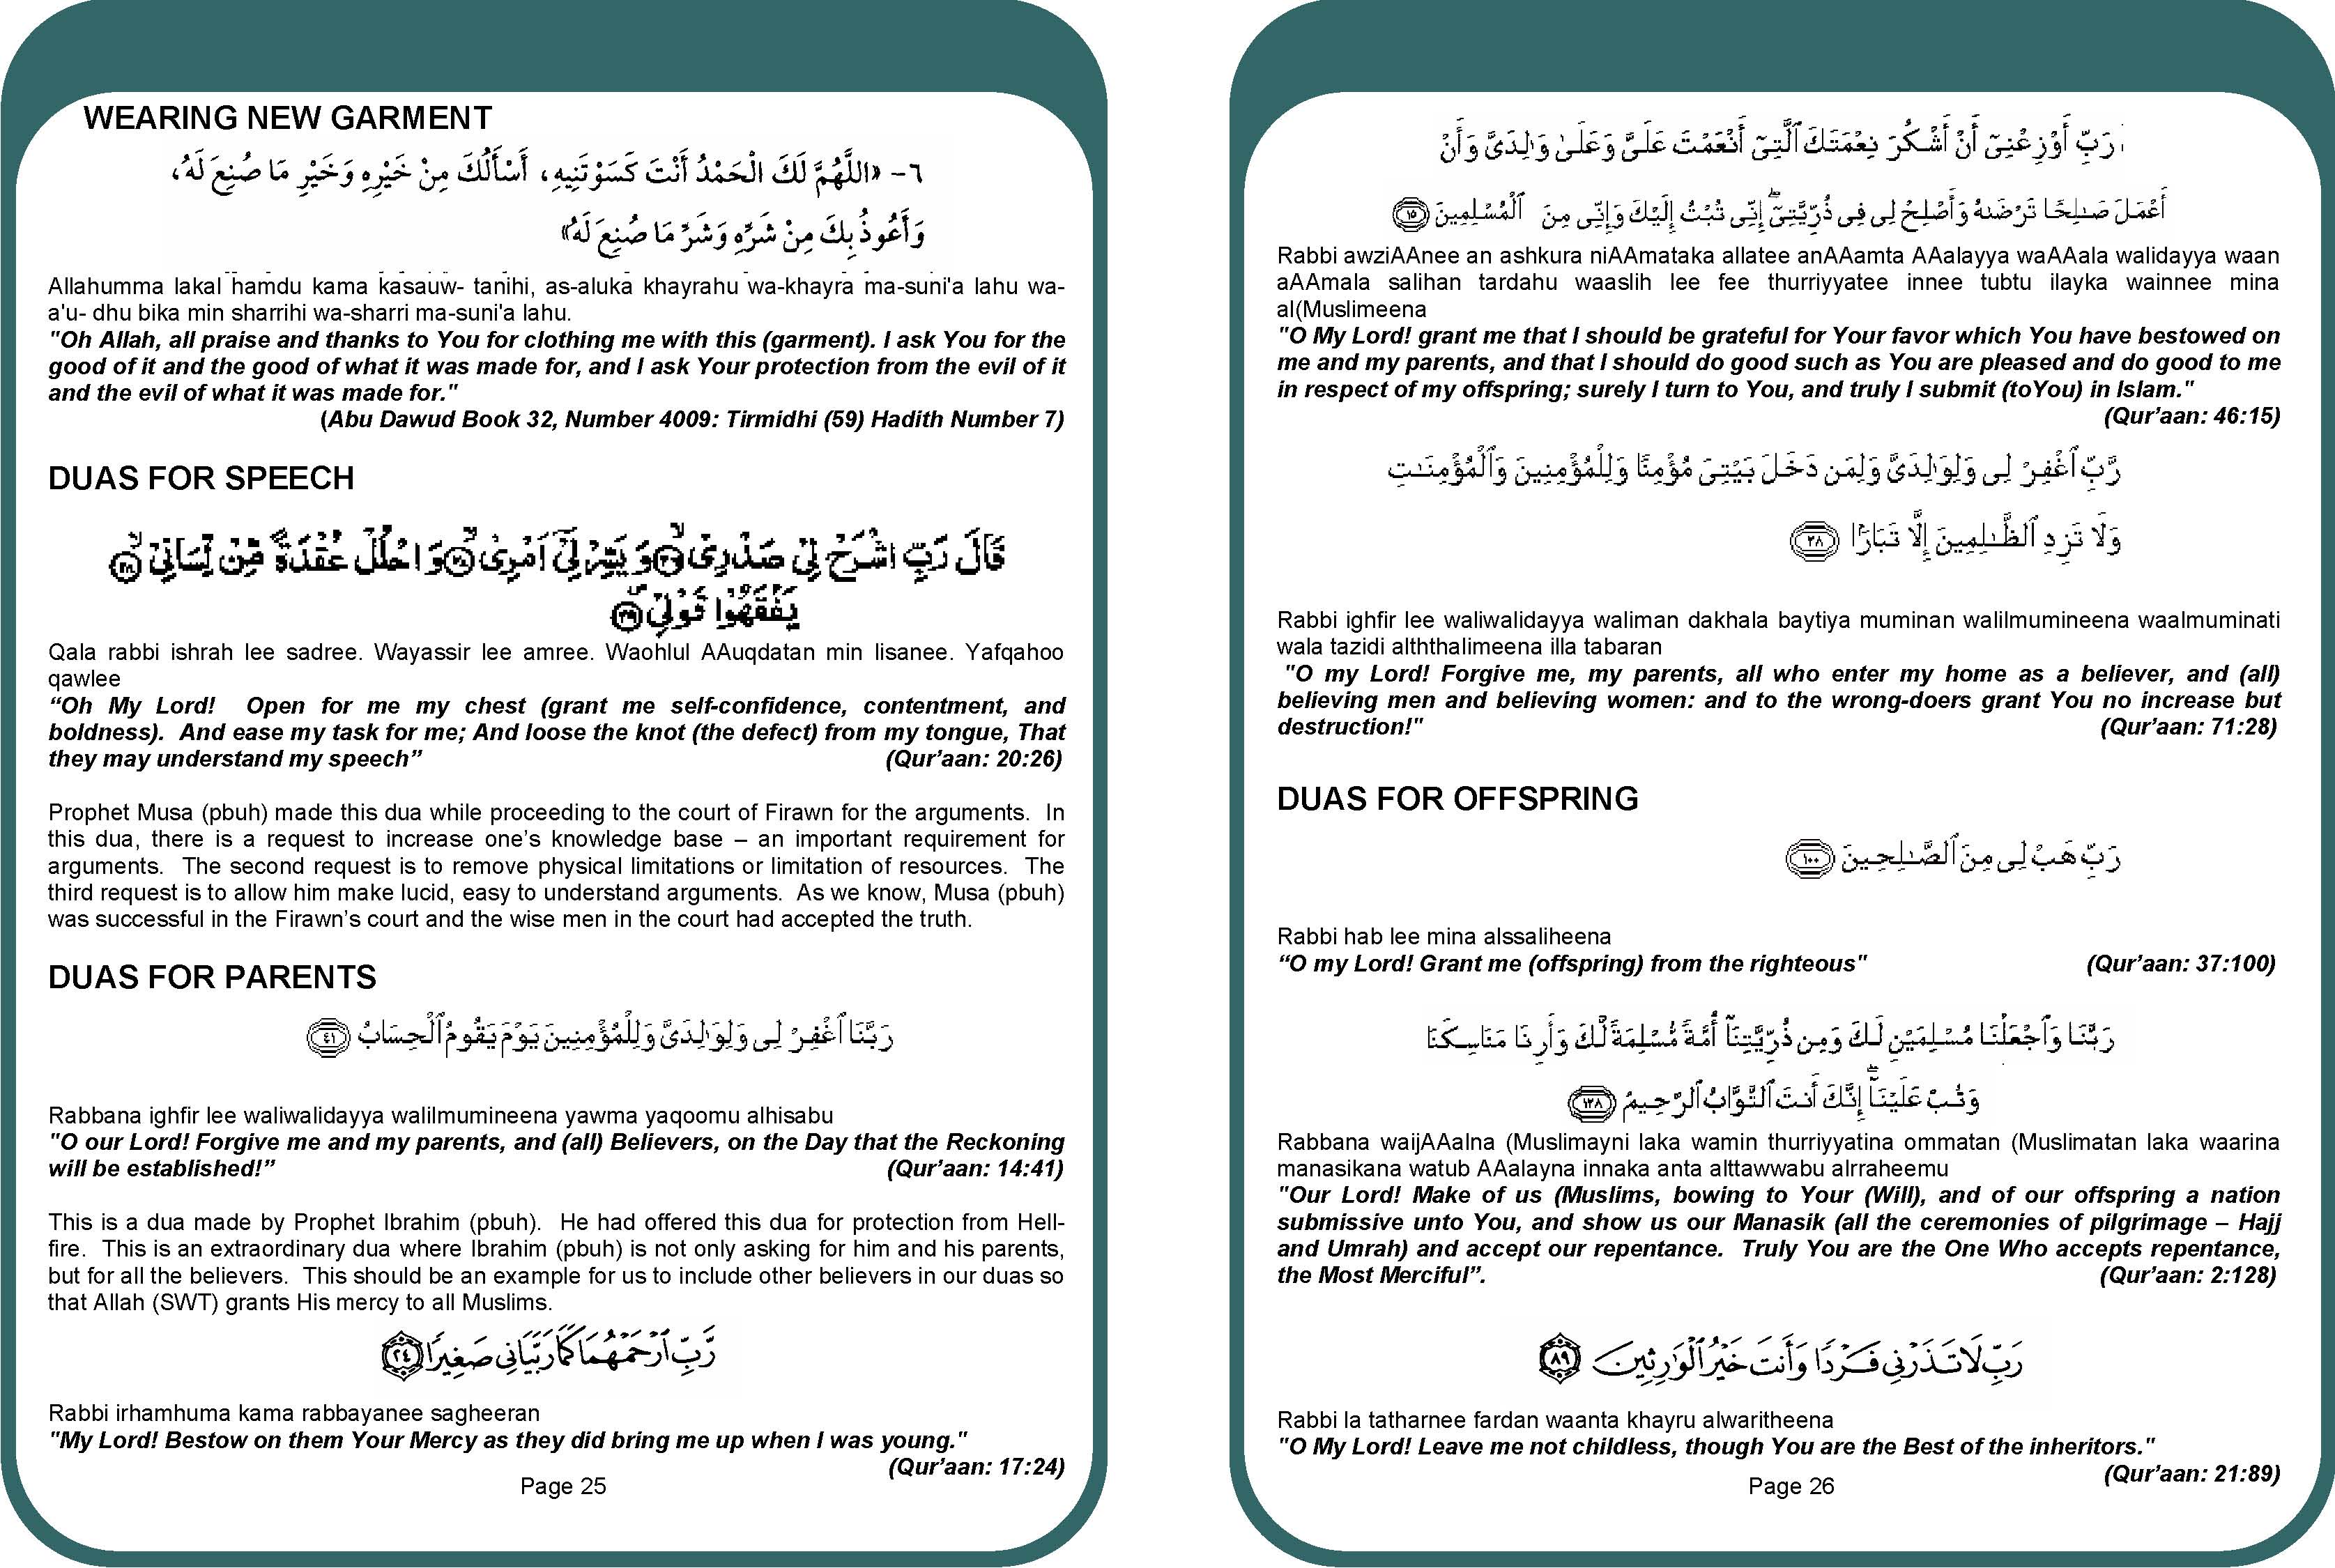 WEARING NEW GARMENT
٦- «اللَّهُمَّ لَكَ الْحَمْدُ أَنْتَ كَسَوْتَنِيهِ، أَسْأَلُكَ مِنْ خَيْرِهِ وَخَيْرِ مَا صُنِعَ لَهُ،
وَأَعُوذُ بِكَ مِنْ شَرِّهِ وَشَرِّ مَا صُنِعَ لَهُ»
Allahumma lakal hamdu kama kasauw- tanihi, as-aluka khayrahu wa-khayra ma-suni'a lahu wa-
a'u- dhu bika min sharrihi wa-sharri ma-suni'a lahu.
"Oh Allah, all praise and thanks to You for clothing me with this (garment). I ask You for the
good of it and the good of what it was made for, and I ask Your protection from the evil of it
and the evil of what it was made for."
(Abu Dawud Book 32, Number 4009: Tirmidhi (59) Hadith Number 7)
DUAS FOR SPEECH
قَالَ رَبِّ اشْرَحْ لِيْ صَدْرِيْ ۙ﴿۲۵﴾ وَيَسِّرْ لِيْٓ اَمْرِيْ ۙ﴿۲۶﴾ وَاحْلُلْ عُقْدَةً مِّنْ لِّسَانِيْ ۙ﴿۲۷﴾
يَفْقَهُوْا قَوْلِيْ ۪﴿۲۸﴾
Qala rabbi ishrah lee sadree. Wayassir lee amree. Waohlul AAuqdatan min lisanee. Yafqahoo
qawlee
“Oh My Lord! Open for me my chest (grant me self-confidence, contentment, and
boldness). And ease my task for me; And loose the knot (the defect) from my tongue, That
they may understand my speech” (Qur’aan: 20:26)
Prophet Musa (pbuh) made this dua while proceeding to the court of Firawn for the arguments. In
this dua, there is a request to increase one’s knowledge base – an important requirement for
arguments. The second request is to remove physical limitations or limitation of resources. The
third request is to allow him make lucid, easy to understand arguments. As we know, Musa (pbuh)
was successful in the Firawn’s court and the wise men in the court had accepted the truth.
DUAS FOR PARENTS
رَبَّنَا ٱغْفِرْ لِى وَلِوَٰلِدَىَّ وَلِلْمُؤْمِنِينَ يَوْمَ يَقُومُ ٱلْحِسَابُ ﴿٤١﴾
Rabbana ighfir lee waliwalidayya walilmumineena yawma yaqoomu alhisabu
"O our Lord! Forgive me and my parents, and (all) Believers, on the Day that the Reckoning
will be established!” (Qur’aan: 14:41)
This is a dua made by Prophet Ibrahim (pbuh). He had offered this dua for protection from Hell-
fire. This is an extraordinary dua where Ibrahim (pbuh) is not only asking for him and his parents,
but for all the believers. This should be an example for us to include other believers in our duas so
that Allah (SWT) grants His mercy to all Muslims.
رَّبِّ ٱرْحَمْهُمَا كَمَا رَبَّيَانِي صَغِيرًا ﴿٢٤﴾
Rabbi irhamhuma kama rabbayanee sagheeran
"My Lord! Bestow on them Your Mercy as they did bring me up when I was young."
(Qur’aan: 17:24)
Page 25
رَبِّ أَوْزِعْنِىٓ أَنْ أَشْكُرَ نِعْمَتَكَ ٱلَّتِىٓ أَنْعَمْتَ عَلَىَّ وَعَلَىٰ وَٰلِدَىَّ وَأَنْ
أَعْمَلَ صَـٰلِحًا تَرْضَىٰهُ وَأَصْلِحْ لِى فِى ذُرِّيَّتِىٓ ۖ إِنِّى تُبْتُ إِلَيْكَ وَإِنِّى مِنَ ٱلْمُسْلِمِينَ ﴿١٥﴾
Rabbi awziAAnee an ashkura niAAmataka allatee anAAamta AAalayya waAAala walidayya waan
aAAmala salihan tardahu waaslih lee fee thurriyyatee innee tubtu ilayka wainnee mina
al(Muslimeena
"O My Lord! grant me that I should be grateful for Your favor which You have bestowed on
me and my parents, and that I should do good such as You are pleased and do good to me
in respect of my offspring; surely I turn to You, and truly I submit (toYou) in Islam."
(Qur’aan: 46:15)
رَّبِّ ٱغْفِرْ لِى وَلِوَٰلِدَىَّ وَلِمَن دَخَلَ بَيْتِىَ مُؤْمِنًا وَلِلْمُؤْمِنِينَ وَٱلْمُؤْمِنَـٰتِ
وَلَا تَزِدِ ٱلظَّـٰلِمِينَ إِلَّا تَبَارًۢا ﴿٢٨﴾
Rabbi ighfir lee waliwalidayya waliman dakhala baytiya muminan walilmumineena waalmuminati
wala tazidi alththalimeena illa tabaran
"O my Lord! Forgive me, my parents, all who enter my home as a believer, and (all)
believing men and believing women: and to the wrong-doers grant You no increase but
destruction!" (Qur’aan: 71:28)
DUAS FOR OFFSPRING
رَبِّ هَبْ لِى مِنَ ٱلصَّـٰلِحِينَ ﴿١٠٠﴾
Rabbi hab lee mina alssaliheena
“O my Lord! Grant me (offspring) from the righteous" (Qur’aan: 37:100)
رَبَّنَا وَٱجْعَلْنَا مُسْلِمَيْنِ لَكَ وَمِن ذُرِّيَّتِنَآ أُمَّةً مُّسْلِمَةً لَّكَ وَأَرِنَا مَنَاسِكَنَا
وَتُبْ عَلَيْنَآ ۖ إِنَّكَ أَنتَ ٱلتَّوَّابُ ٱلرَّحِيمُ ﴿١٢٨﴾
Rabbana waijAAalna (Muslimayni laka wamin thurriyyatina ommatan (Muslimatan laka waarina
manasikana watub AAalayna innaka anta alttawwabu alrraheemu
"Our Lord! Make of us (Muslims, bowing to Your (Will), and of our offspring a nation
submissive unto You, and show us our Manasik (all the ceremonies of pilgrimage – Hajj
and Umrah) and accept our repentance. Truly You are the One Who accepts repentance,
the Most Merciful”. (Qur’aan: 2:128)
رَبِّ لَا تَذَرْنِي فَرْدًا وَأَنتَ خَيْرُ ٱلْوَٰرِثِينَ ﴿٨٩﴾
Rabbi la tatharnee fardan waanta khayru alwaritheena
"O My Lord! Leave me not childless, though You are the Best of the inheritors."
(Qur’aan: 21:89)
Page 26